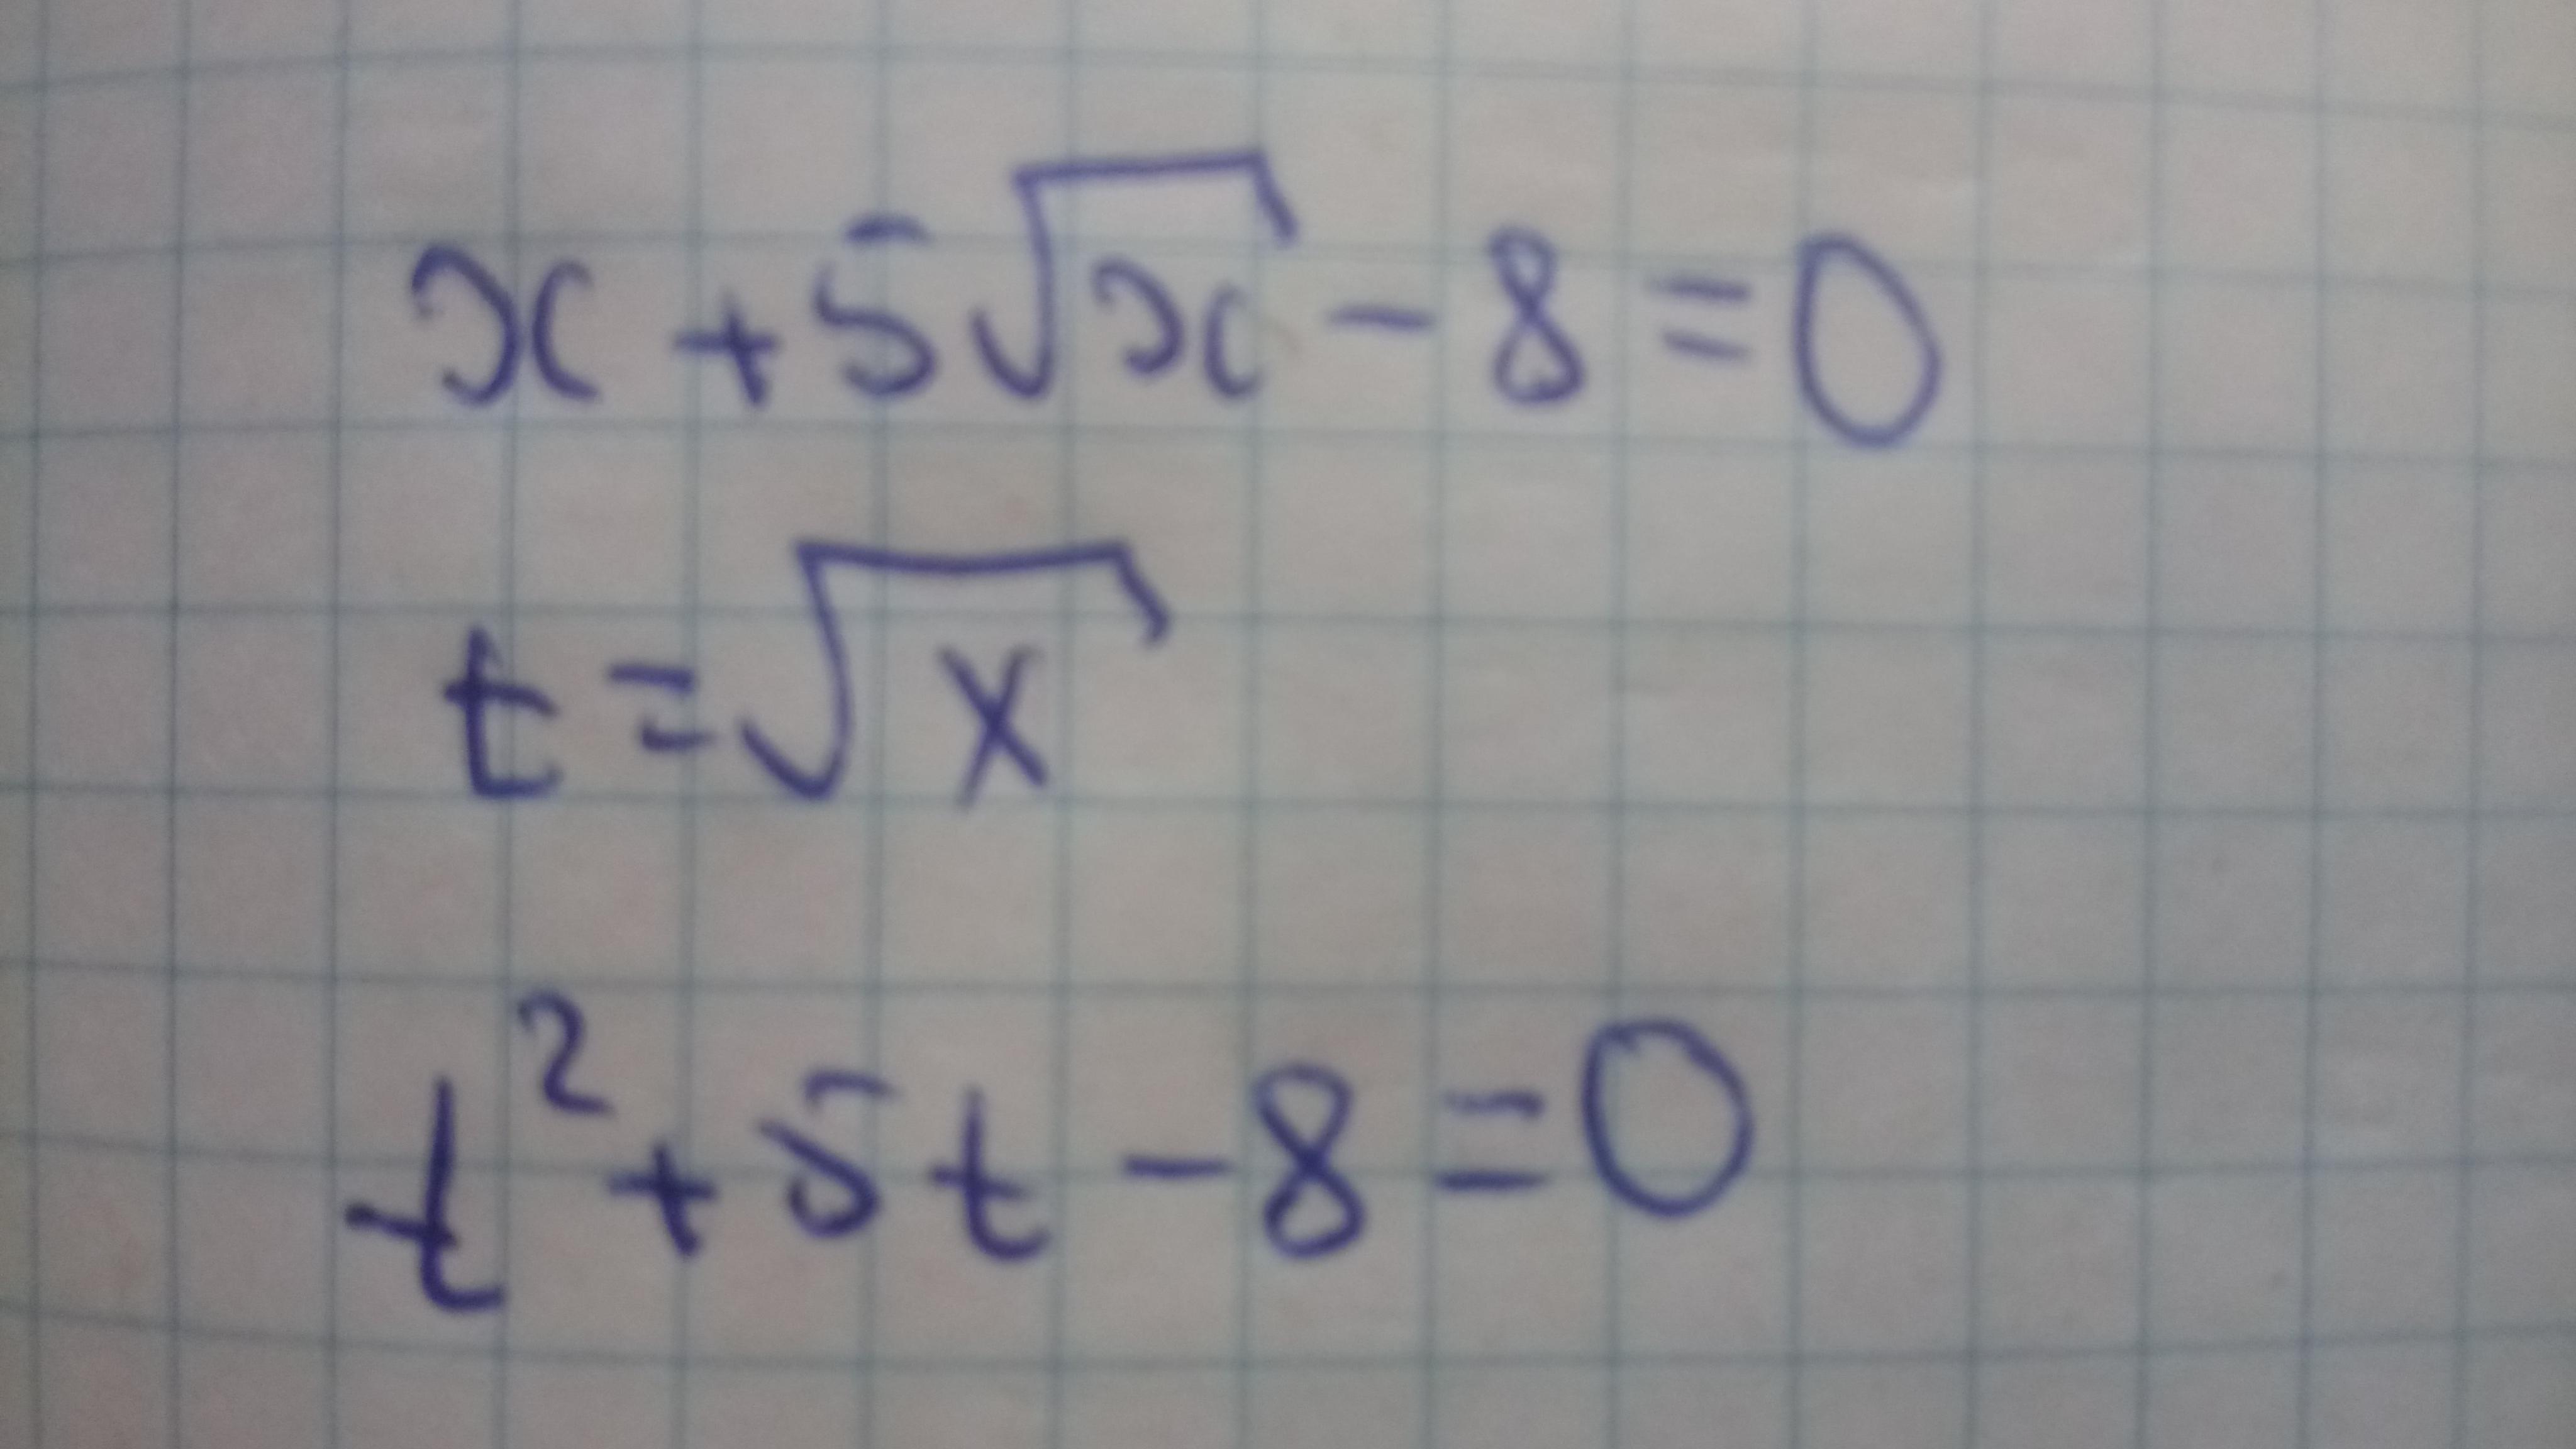 x + 5√x - 8 = 0
t = √x
t² + 5t - 8 = 0